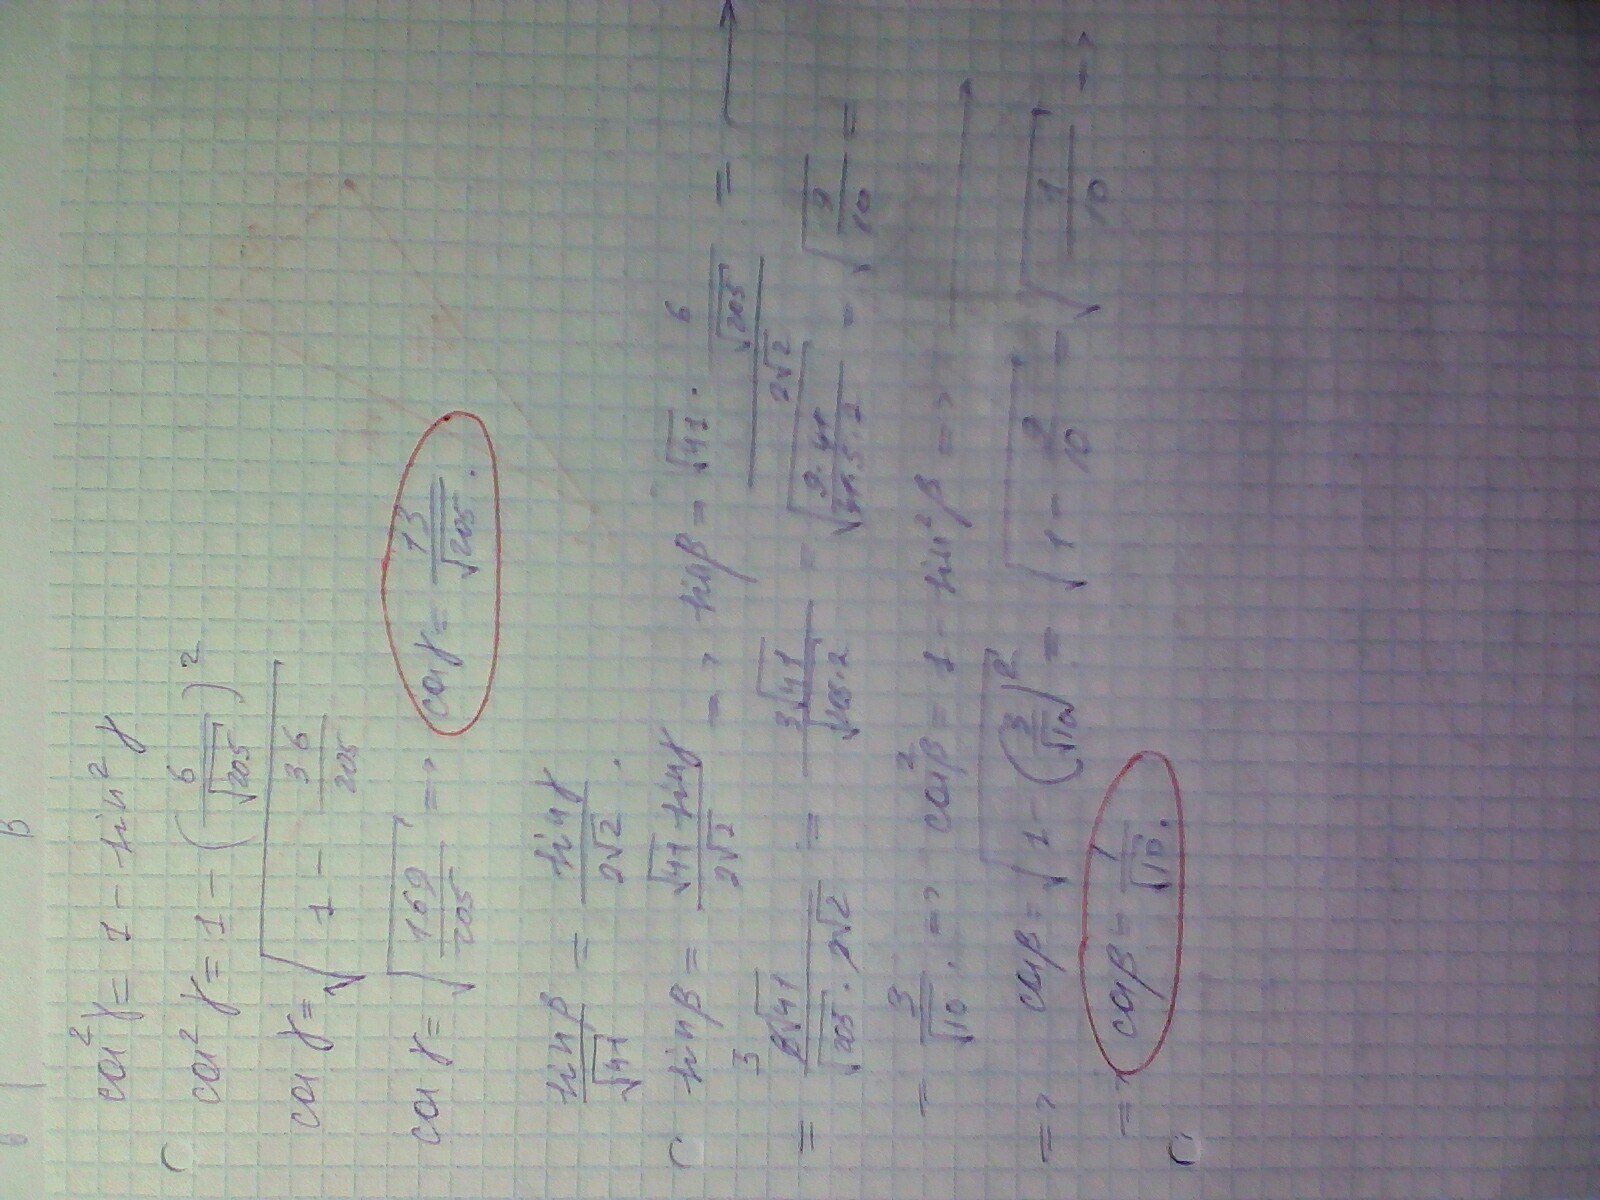 cos²γ = 1 - sin²γ
cos²γ = 1 - (6/√205)²
cos γ = √(1 - 36/205)
cos γ = √(169/205) => cos γ = 13/√205.
sin β/√41 = sin γ/2√2.
sin β = √41 sin γ/2√2 => sin β = √41 · 6/√205/2√2 =
= 3 6√41/√205 · 2√2 = 3√41/√205·2 = √(9·41/41·5·2) = √(9/10) =
= 3/√10. => cos²β = 1 - sin²β =>
=> cos β = √(1 - (3/√10)²) = √(1 - 9/10) = √(1/10) =>
=> cos β = 1/√10.